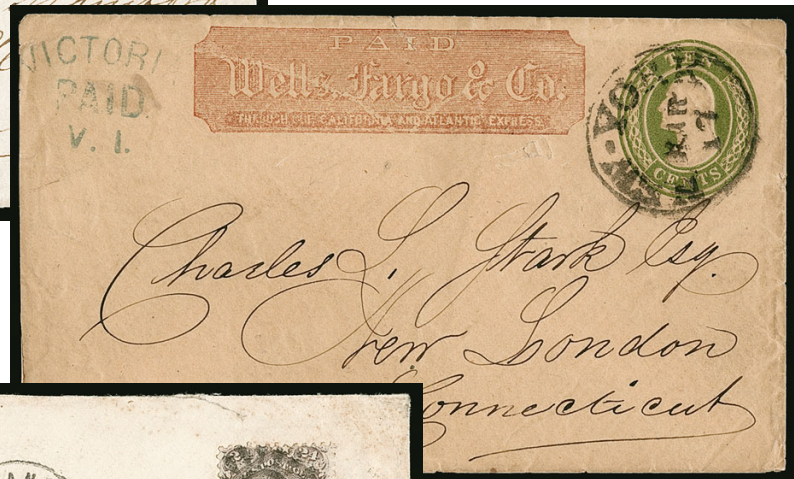 VICTORI
PAID
V. I.
PAID
Wells, Fargo & Co.
THROUGH OUR CALIFORNIA AND ATLANTIC EXPRESS.
NEW-YORK
MAR
17
TEN
CENTS
Charles L. Stark Esq.
New London
Connecticut